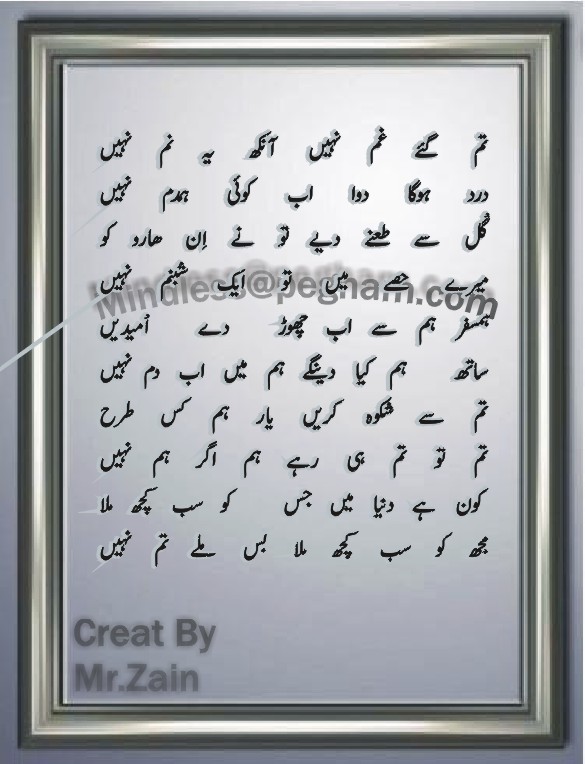 تم گئے غم نہیں آنکھ یہ نم نہیں
درد ہوگا دوا اب کوئی ہمدم نہیں
گل سے طعنے دیے تو نے اِن ھارو کو
میرے حصے میں تو ایک شبنم نہیں
Mindless@pegham.com
ہمسفر ہم سے اب چھوڑ دے اُمیدیں
ساتھ ہم کیا دینگے ہم میں اب دم نہیں
تم سے شکوہ کریں یار ہم کس طرح
تم تو تم ہی رہے ہم اگر ہم نہیں
کون ہے دنیا میں جس کو سب کچھ ملا
مجھ کو سب کچھ ملا بس ملے تم نہیں
Creat By
Mr.Zain